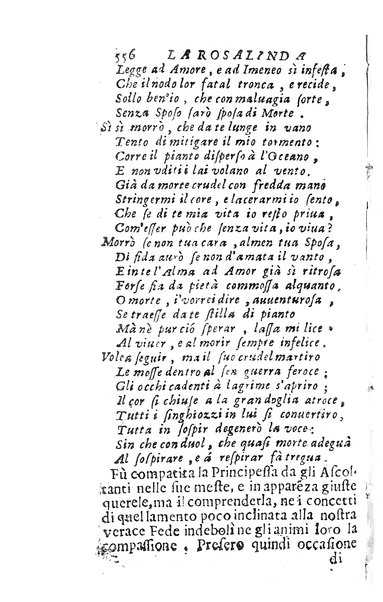 556 LA ROSALINDA
Legge ad Amore, e ad Imeneo sì infesta,
Che il nodo lor fatal tronca, e recide,
Sollo ben'io, che con maluagia sorte,
Senza Sposo sarò sposa di Morte.
Sì sì morrò, che da te lunge in vano
Tento di mitigare il mio tormento:
Corre il pianto disperso à l'Oceano,
E non vditi i lai volano al vento.
Già da morte crudel con fredda mano
Stringermi il core, e lacerarmi io sento,
Che se di te mia vita io resto priua,
Com'esser può che senza vita, io viua?
Morrò se non tua cara, almen tua Sposa,
Di fida aurò se non d'amata il vanto,
E in te l'Alma ad Amor già sì ritrosa
Forse fia da pietà commossa alquanto.
O morte, i' vorrei dire, auuenturosa,
Se traesse da te stilla di pianto
Mà nè pur ciò sperar, lassa mi lice
Al viuer, e al morir sempre infelice.
Volea seguir, ma il suo crudel martiro
Le mosse dentro al sen guerra feroce;
Gli occhi cadenti à lagrime s'apriro;
Il cor si chiuse a la gran doglia atroce,
Tutti i singhiozzi in lui si conuertiro,
Tutta in sospir degenerò la voce:
Sin che con duol, che quasi morte adeguà
Al sospirare, e à respirar fà tregua.
Fù compatita la Principessa da gli Ascol-
tanti nelle sue meste, e in apparēza giuste
querele, ma il comprenderla, ne i concetti
di quel lamento poco inclinata alla nostra
verace Fede indebolì ne gli animi loro la
compassione. Presero quindi occasione
di